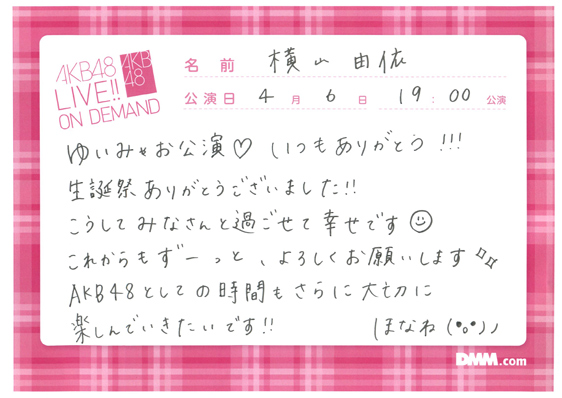 AKB48
LIVE!!
ON DEMAND
AKB
48
名前 横山 由依
公演日 4月 6日 19:00 公演
ゆいみゃお公演♡ いつもありがとう!!!
生誕祭ありがとうございました!!
こうしてみなさんと過ごせて幸せです☺
これからもずーっと、よろしくお願いします✧✧
AKB48としての時間もさらに大切に
楽しんでいきたいです!! ほなね(•o•)ノ
DMM.com